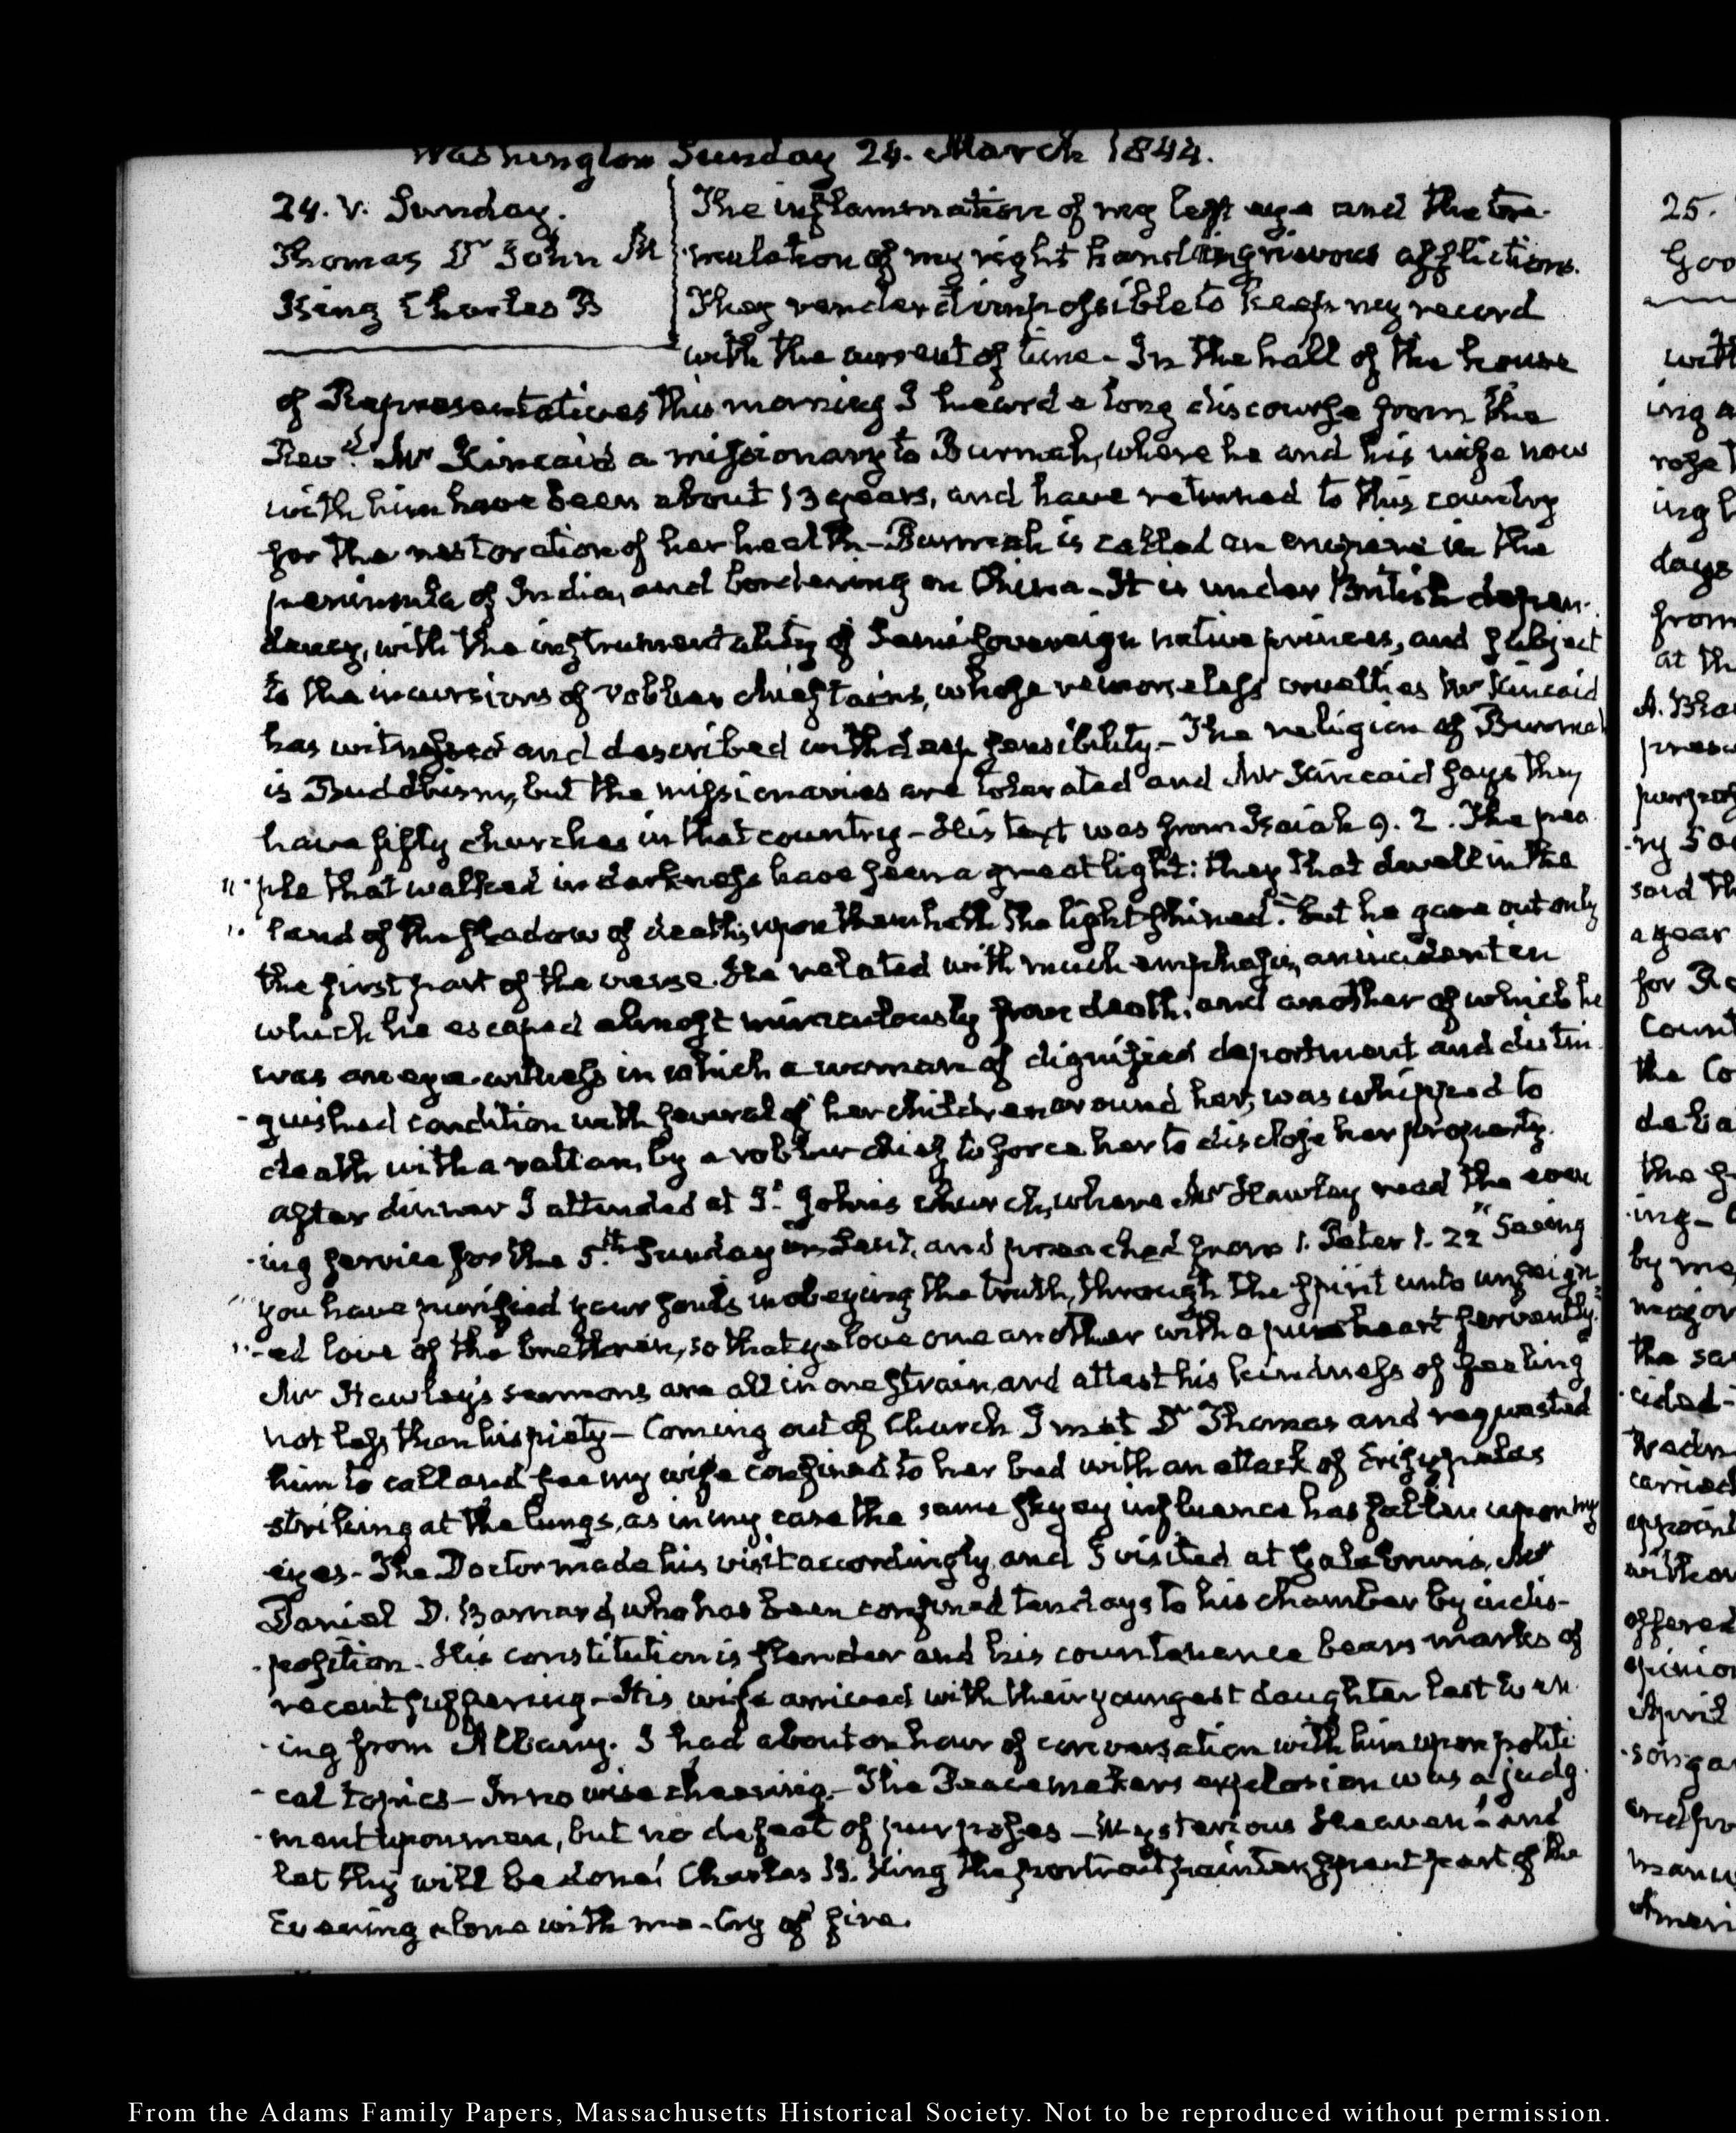 Washington Sunday 24. March 1844.
24. V. Sunday.
Thomas Dr John M
King Charles B
The inflammation of my left eye and the tre-
mulation of my right hand are grievous afflictions.
They render it impossible to keep my record
with the current of time - In the hall of the house
of Representatives this morning I heard a long discourse from the
Revd. Mr Kincaid a missionary to Burmah, where he and his wife now
with him have been about 13 years, and have returned to this country
for the restoration of her health - Burmah is called an empire in the
peninsula of India, and bordering on China - It is under British depen-
dency, with the instrumentality of Semi sovereign native princes, and subject
to the incursions of robber chieftains, whose remorseless cruelties Mr Kincaid
has witnessed and described with deep sensibility - The religion of Burmah
is Buddhism, but the missionaries are tolerated and Mr Kincaid says they
have fifty churches in that country - His text was from Isaiah 9. 2. The peo
"ple that walked in darkness have seen a great light: they that dwell in the
". land of the shadow of death, upon them hath the light shined." But he gave out only
the first part of the verse. He related with much emphasis, an incident in
which he escaped almost miraculously from death; and another of which he
was an eye-witness in which a woman of dignified deportment and distin
-guished condition with several of her children around her, was whipped to
death with a rattan, by a robber chief to force her to disclose her property.
After dinner I attended at St. John's church, where Mr Hawley read the even
-ing service for the 5th. Sunday in Lent, and preached from 1. Peter 1. 22 "Seeing
"you have purified your souls in obeying the truth, through the spirit unto unfeign
"-ed love of the brethren, so that ye love one another with a pure heart fervently."
Mr Hawley's sermons are all in one strain, and attest his kindness of feeling
not less than his piety - Coming out of Church I met Dr Thomas and requested
him to call and see my wife confined to her bed with an attack of Erisypelas
striking at the lungs, as in my case the same skyey influence has fallen upon my
eyes - The Doctor made his visit accordingly, and I visited at Galabruns, Mr
Daniel D. Barnard, who has been confined ten days to his chamber by indis-
-position - His constitution is slender and his countenance bears marks of
recent suffering - His wife arrived with their youngest daughter last
ing from Albany. I had about an hour of conversation with him upon politi
-cal topics - In no wise cheering - The Peacemakers explosion was a judg
-ment upon men, but no defeat of purposes - Mysterious Heaven! and
let thy will be done! Charles B. King the portrait painter, spent part of the
Evening alone with me - Cry of fire.
25.
Goo
with
ing a
rose
ing
days
from
at th
A. Bra
said Th
a year
for Re
Count
the Co
deba
the
ing -
by me
major
the sa
cided -
carried
offered
opinion
April
song a
Ameri
From the Adams Family Papers, Massachusetts Historical Society. Not to be reproduced without permission.